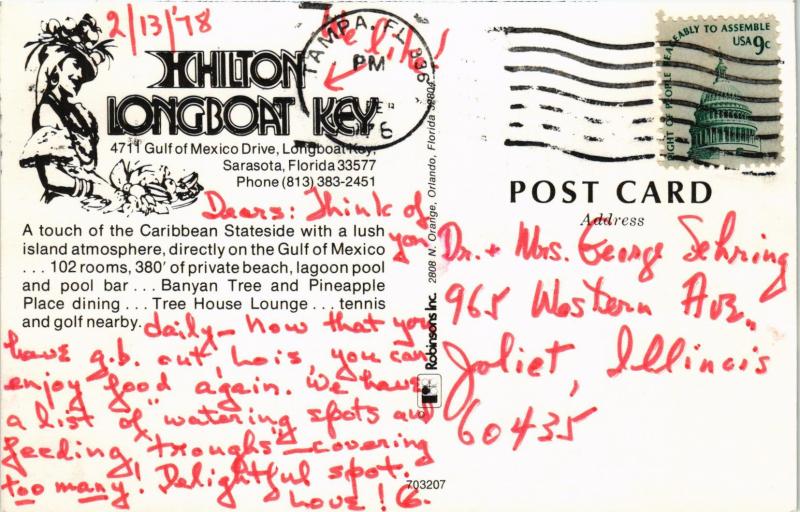 2/13/'78
We like!
HILTON
LONGBOAT KEY
4711 Gulf of Mexico Drive, Longboat Key,
Sarasota, Florida 33577
Phone (813) 383-2451
TAMPA, FL 336
PM
RIGHT OF PEOPLE PEACEABLY TO ASSEMBLE
USA 9c
Dears: Think of
you
A touch of the Caribbean Stateside with a lush
island atmosphere, directly on the Gulf of Mexico
... 102 rooms, 380' of private beach, lagoon pool
and pool bar ... Banyan Tree and Pineapple
Place dining ... Tree House Lounge ... tennis
and golf nearby.
daily – now that you
have g.b. out, Lois, you can
enjoy food again. We have
a list of "watering spots and
feeding troughs" – covering
too many! Delightful spot.
Love! G.
Robinsons Inc. 2808 N. Orange, Orlando, Florida
703207
POST CARD
Address
Dr. + Mrs. George Sehring
965 Western Ave.,
Joliet, Illinois
60435